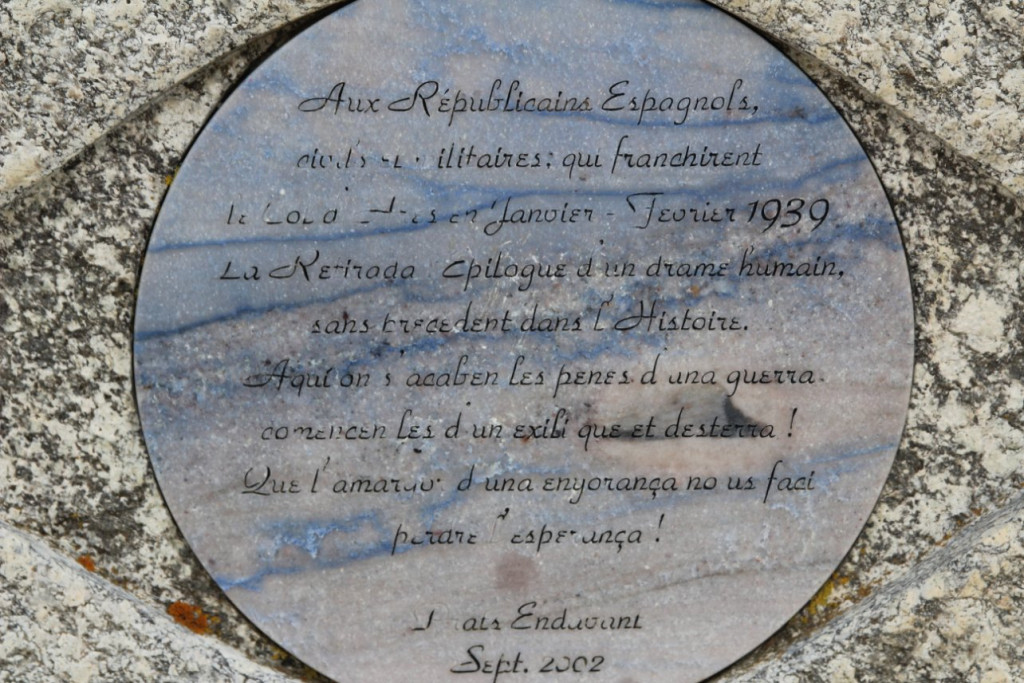 Aux Républicains Espagnols,
civils et militaires; qui franchirent
le Col d'Ares en Janvier - Fevrier 1939
La Retirada Epilogue d'un drame humain,
sans precedent dans l'Histoire.
Aqui on s'acaben les penes d'una guerra
comencen les d'un exili que et desterra !
Que l'amargor d'una enyorança no us faci
perdre l'esperança !
Prats Endavant
Sept. 2002